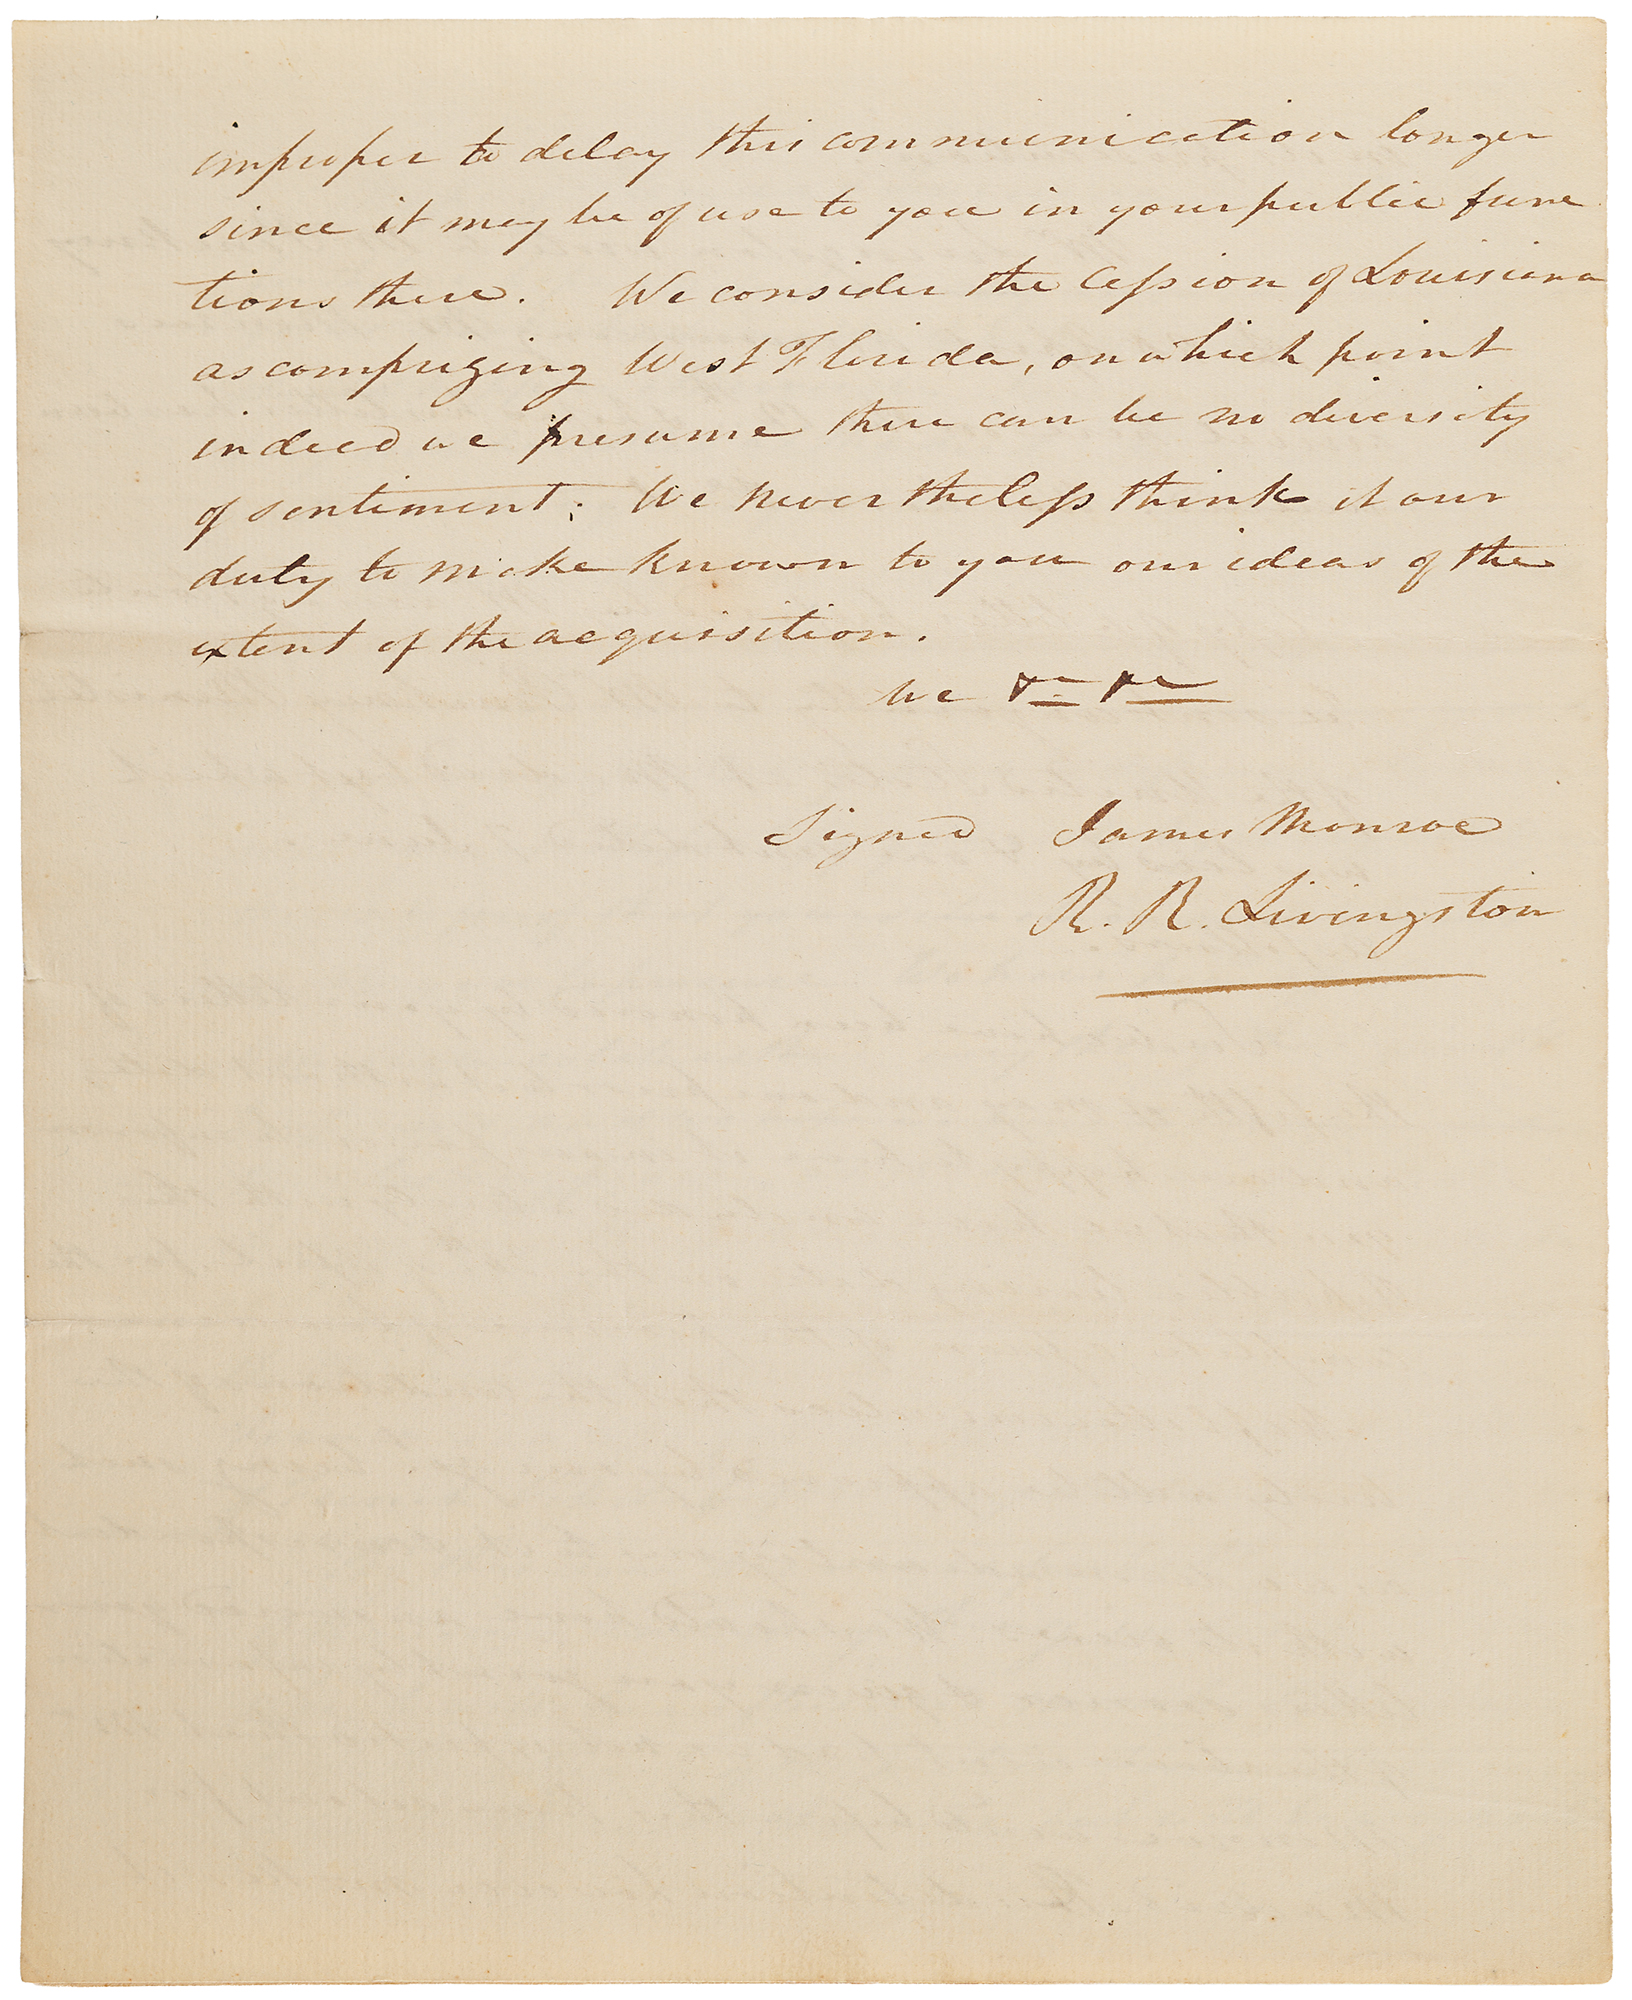 improper to delay this communication longer
since it may be of use to you in your public func
tions there. We consider the Cession of Louisiana
as comprizing West Florida, on which point
indeed we presume there can be no diversity
of sentiment; We nevertheless think it our
duty to make known to you our ideas of the
extent of the acquisition.
We &c &c
Signed James Monroe
R. R. Livingston